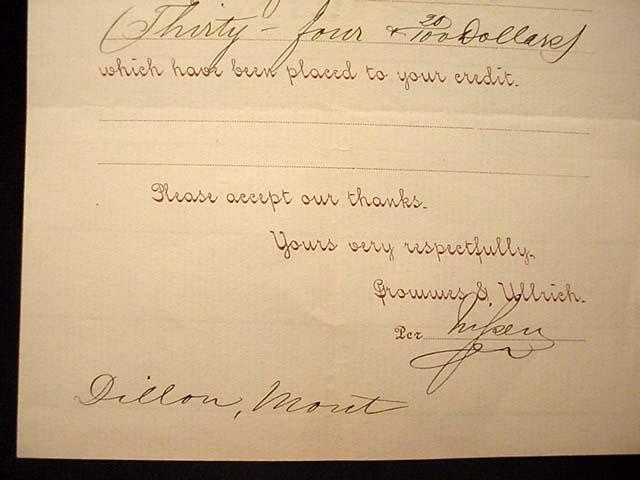 (Thirty-four & 20/100 Dollars)
which have been placed to your credit.
Please accept our thanks.
Yours very respectfully,
Grommes & Ullrich.
Per
Dillon, Mont